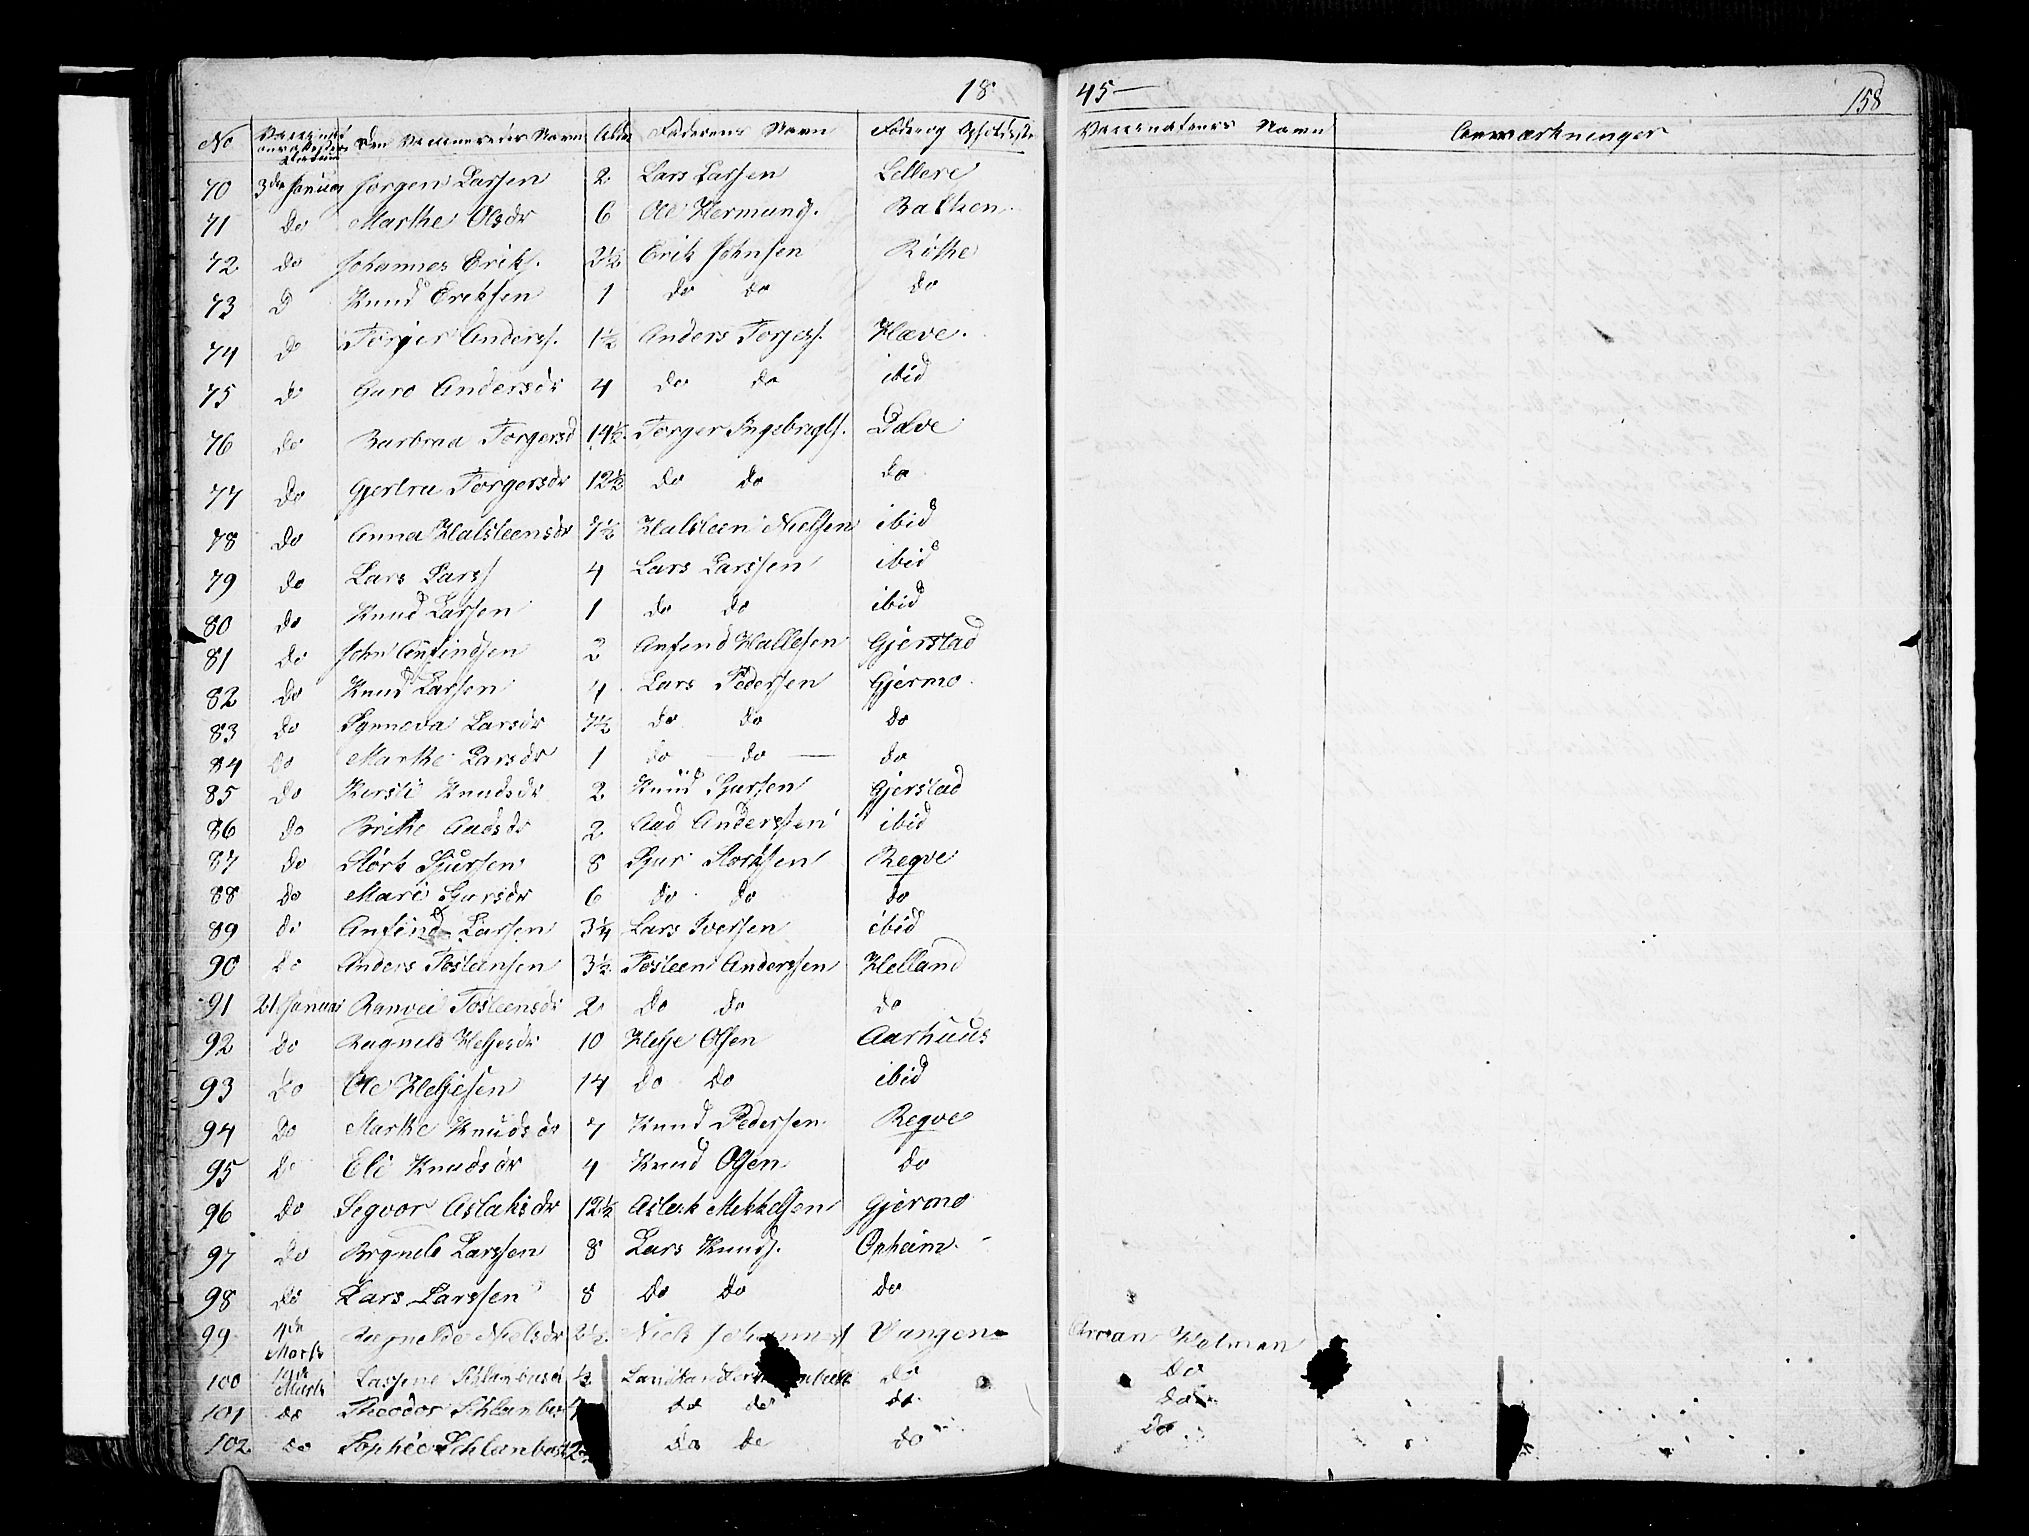 18 45 — 158
No Vaccinationsattestens Datum Den Vaccineredes Navn Alder Faderens Navn Føde og Opholdssted Vaccinateurs Navn Anmærkninger
70 3die Januar Jorgen Larsen 2 Lars Larsen Lellere
71 do Marthe Olsdr 6 Ole Hermunds. Bakken
72 do Johannes Eriks. 2½ Erik Johnsen Röthe
73 D Knud Eriksen 1 do do do
74 do Torger Anderss. 1½ Anders Torgerss. Hæve
75 do Guro Andersdr 4 do do ibid
76 do Barbraa Torgersd 14½ Torger Ingebregts. Dolve
77 do Gjertru Torgersdr 12½ do do do
78 do Anna Halsteensdr 7½ Halsteen Nielsen ibid
79 do Lars Larss 4 Lars Larssen ibid
80 do Knud Larsen 1 do do ibid
81 do John Anfindsen 2 Anfend Hallesen Gjerstad
82 do Knud Larsen 4 Lars Pedersen Gjermo
83 do Synneva Larsdr 7½ do do do
84 do Marthe Larsdr 1 do — do — do
85 do Kersti Knudsdr 2 Knud Sjursen Gjerstad
86 do Brithe Audsdr 2 Aud Anderssen ibid
87 do Störk Sjursen 8 Sjur Störksen Reqve
88 do Mari Sjursdr 6 do do do
89 do Anfind Larsen 3¼ Lars Iversen ibid
90 do Anders Tosteensen 3½ Tosteen Anderssen Helland
91 21 Januar Ranvei Tosteensdr 2 do do do
92 do Ragnele Heljesdr 10 Helje Olsen Aarhuus
93 do Ole Heljesen 14 do do ibid
94 do Marthe Knudsdr 7 Knud Pedersen Reqve
95 do Eli Knudsdr 4 Knud Olsen do
96 do Segvor Aslaksdr 12½ Aslak Mikkelsen Gjermo
97 do Brynele Larssen 8 Lars Knuds. Opheim
98 do Lars Larssen 8 do do do
99 4de Marts Ragnelde Nielsdr 2½ Niels Johannes Vangen Holman
100 Marts ½ do do
101 do Theodor do do do do
102 do Sophie do do do do